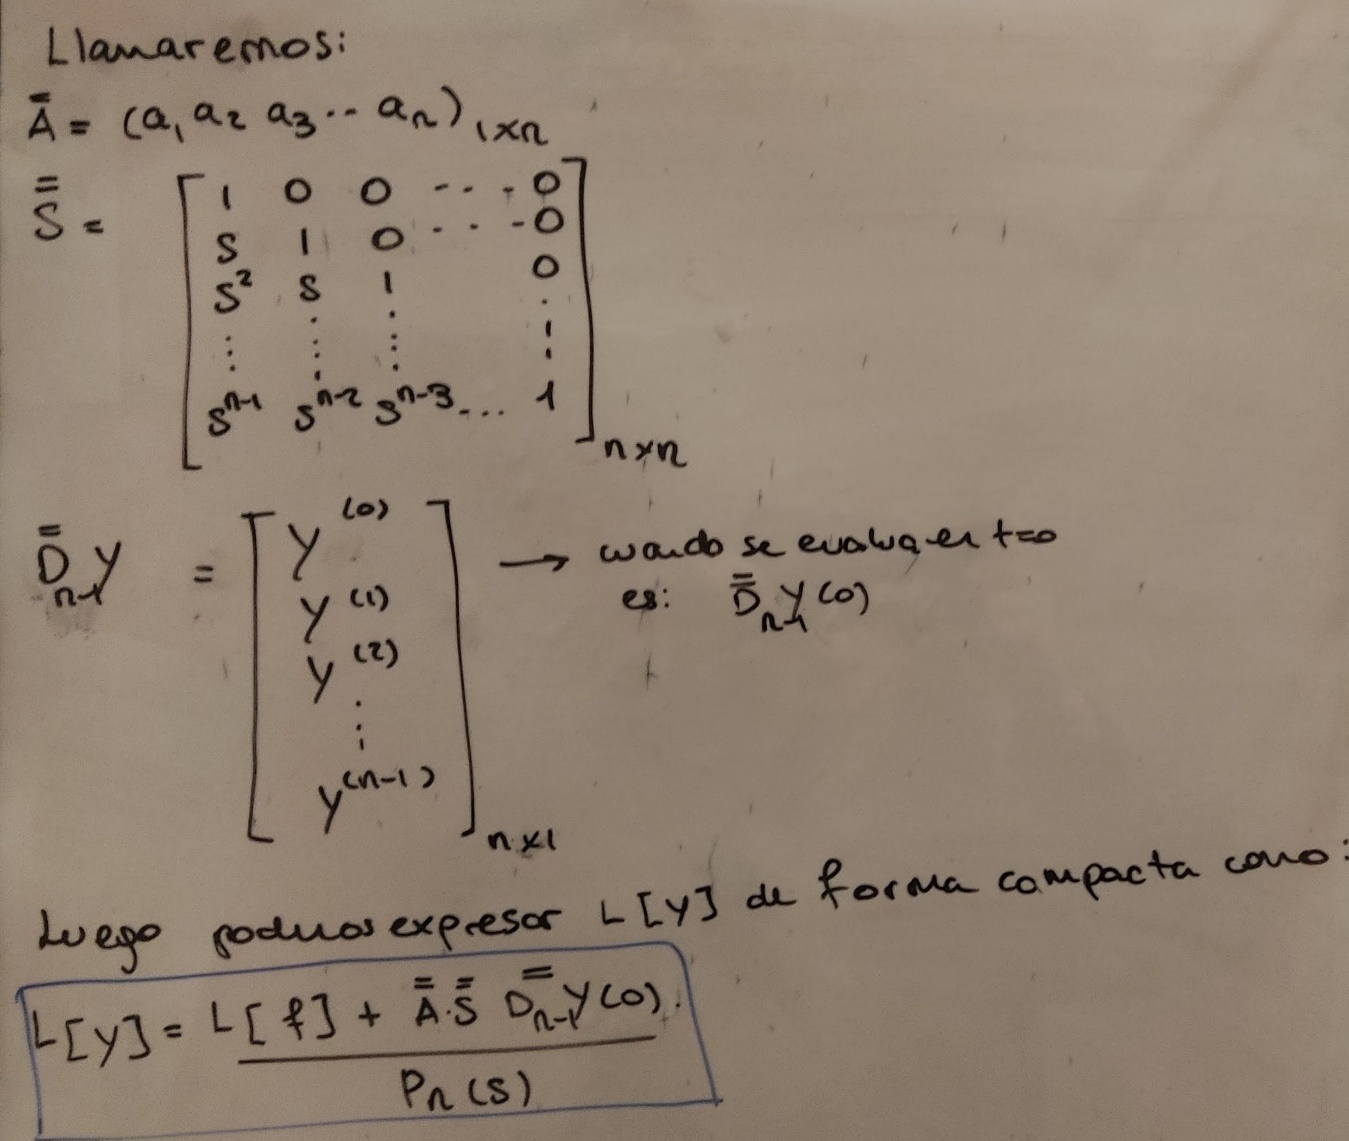 Llamaremos:
Ā̄ = (a₁ a₂ a₃ ·· aₙ) ₁ₓₙ
S̄̄ = [ 1 0 0 -- · 0
S 1 0 · · - 0
S² S 1 0
⋮ ⋮ ⋮ ⋮
Sⁿ⁻¹ Sⁿ⁻² Sⁿ⁻³ ... 1 ] ₙₓₙ
D̄̄ₙ₋₁ y = [ y⁽⁰⁾ → cuando se evalua en t=0
y⁽¹⁾ es: D̄̄ₙ₋₁ y(0)
y⁽²⁾
⋮
y⁽ⁿ⁻¹⁾ ] ₙₓ₁
Luego podemos expresar L[y] de forma compacta como:
L[y] = L[f] + Ā̄·S̄̄ D̄̄ₙ₋₁ y(0).
Pₙ(S)